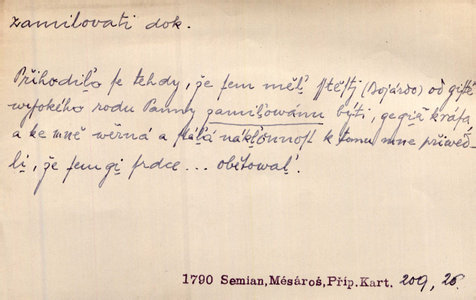 zamilovati dok.
Přihodilo se tehdy, že sem měl štěstj (Bojárdo) od gisté
wysokého rodu Panny zamilowánu býti, gegiž krása
a ke mně wěrná a stálá náklonnost k tomu mne přiwed-
li, že sem gj srdce ... obětowal.
1790 Semian, Mésároš, Příp. Kart. 209, 26.